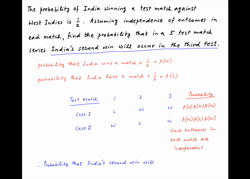 The probability of India winning a test match against
West Indies is 1/2. Assuming independence of outcomes in
each match, find the probability that in a 5 test match
series India's second win wide occur in the third test.
probability that India wins a match = 1/2 = P(W)
probability that India loses a match = 1/2 = P(L)
Test Match 1 2 3 Probability
Case I L W W P(L) P(W) P(W)
Case II W L W P(W) P(L) P(W)
Since outcomes in
each match are
independent
∴ Probability that India's second win wide